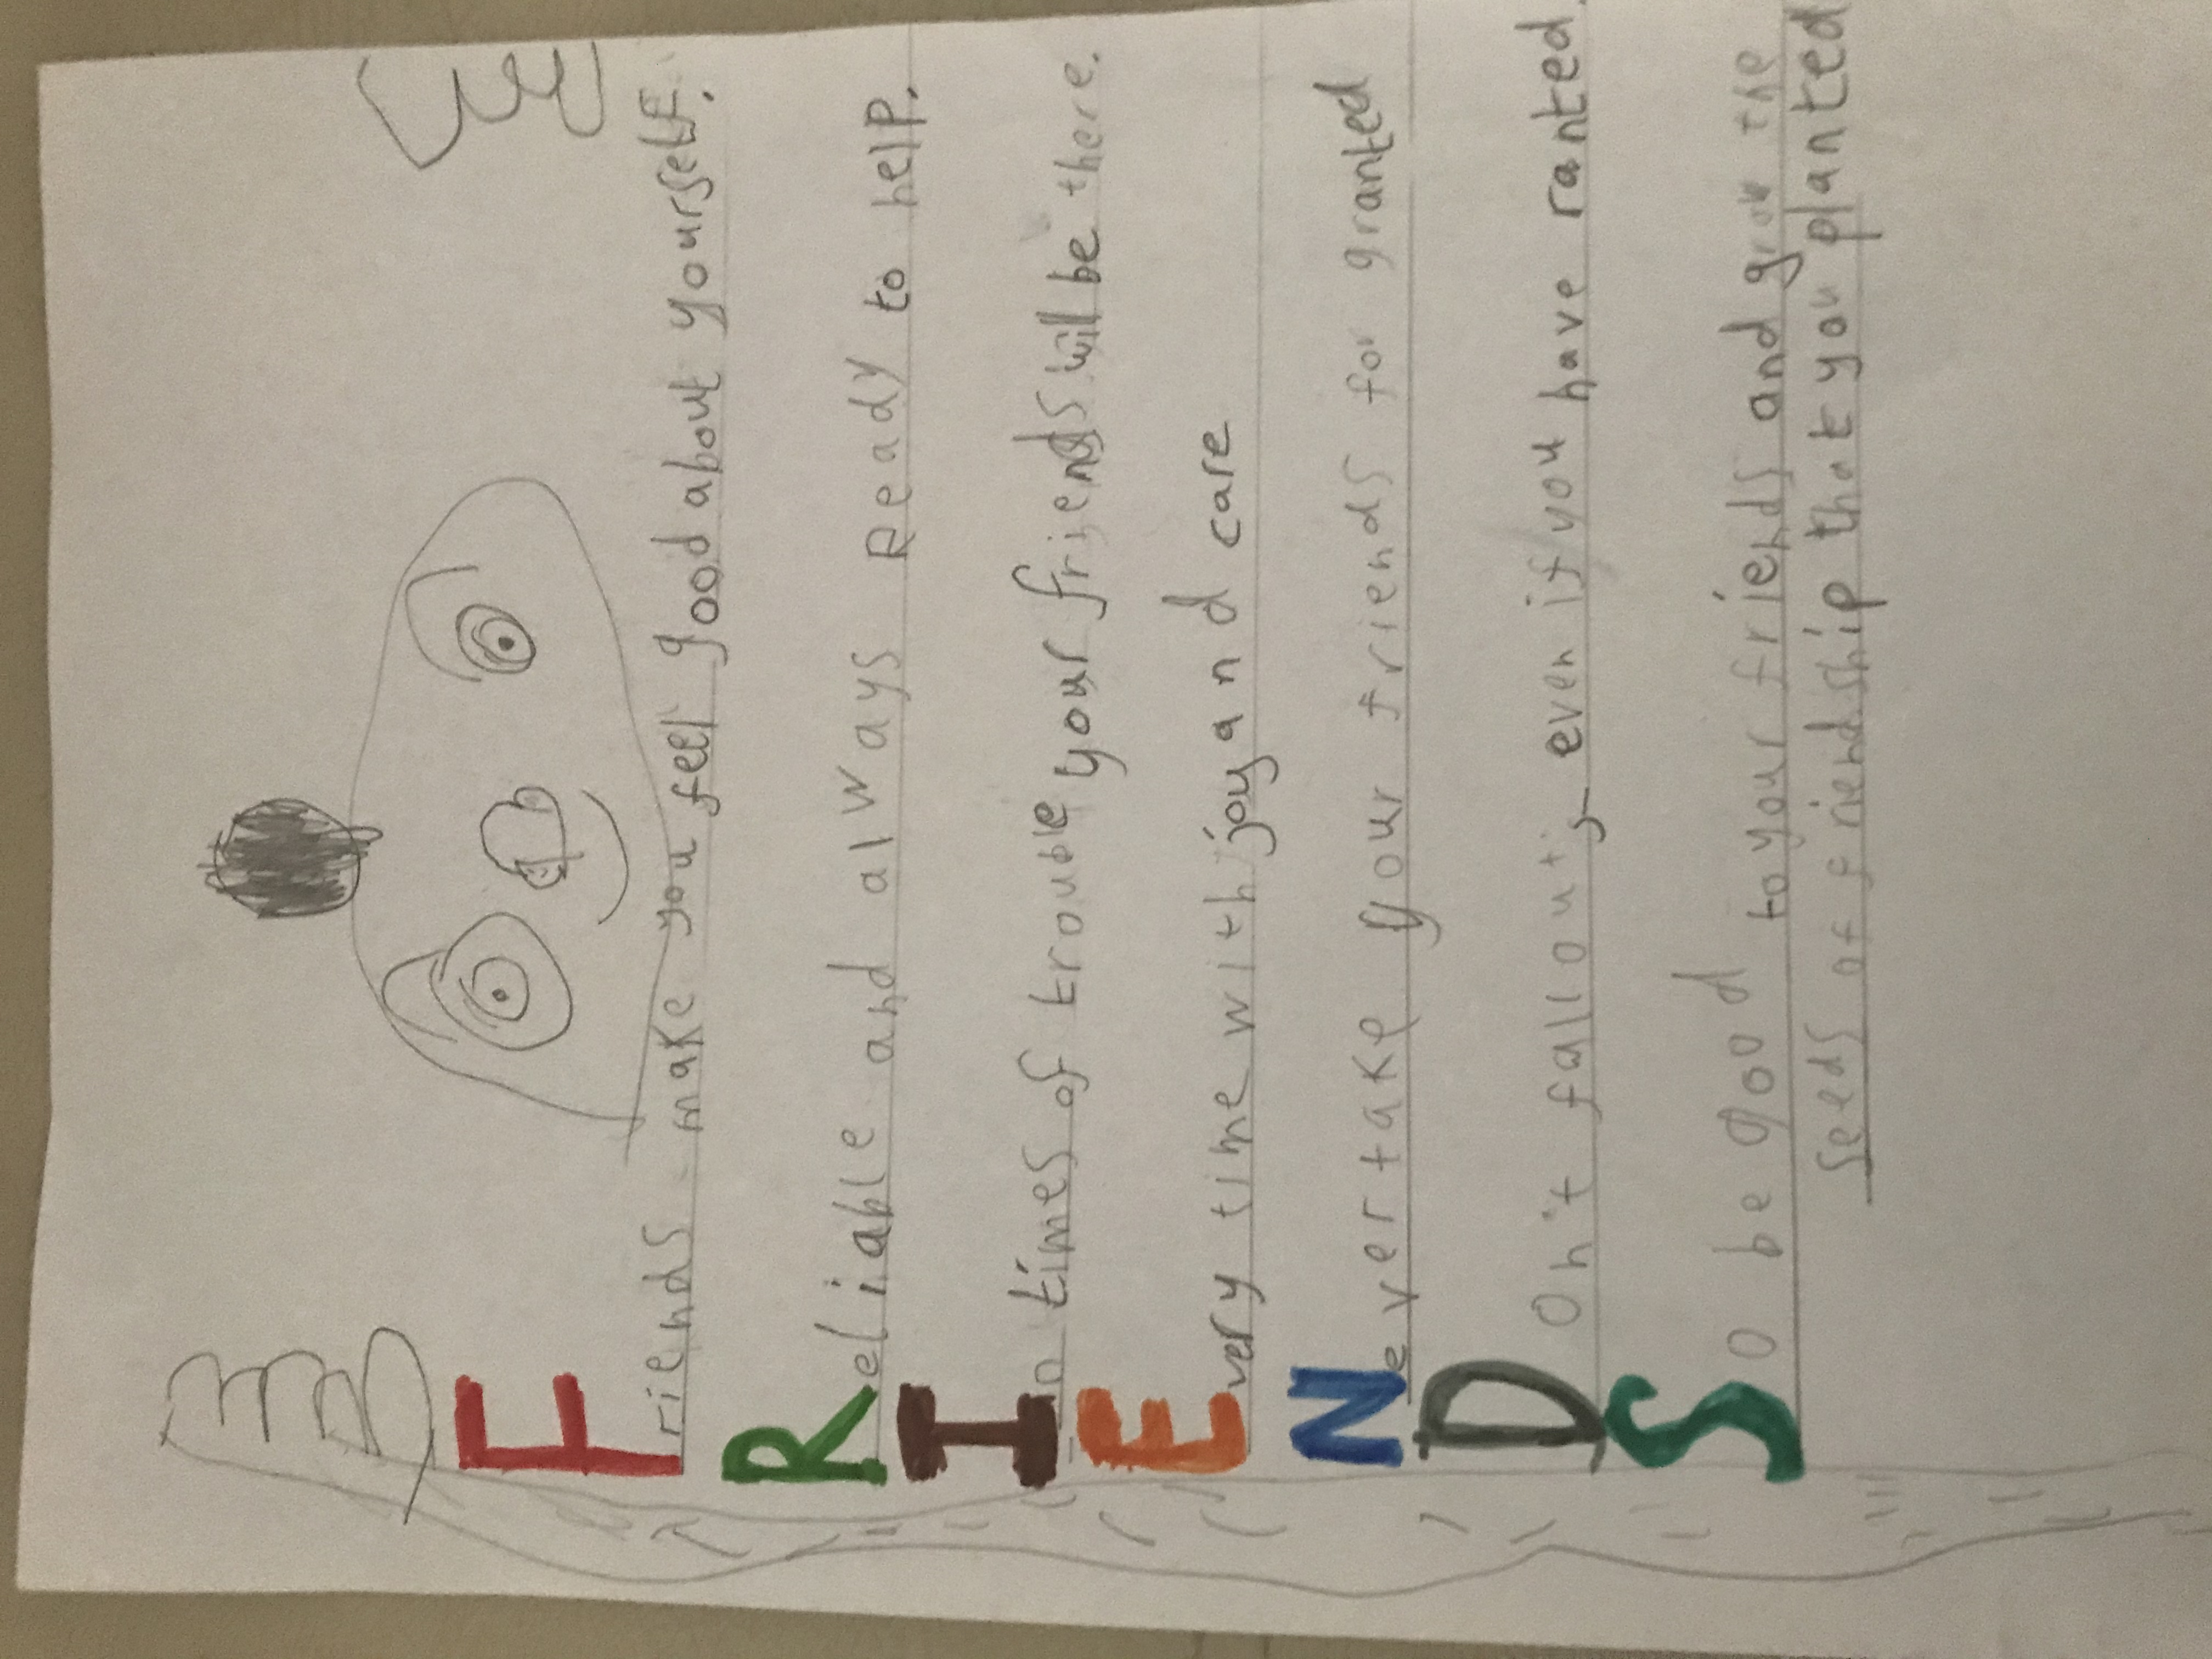 Friends make you feel good about yourself.
Reliable and always Ready to help.
In times of trouble your friends will be there.
Every time with joy and care
Never take your friends for granted
Don't fallout, even if you have ranted.
So be good to your friends and grow the
seeds of friendship that you planted